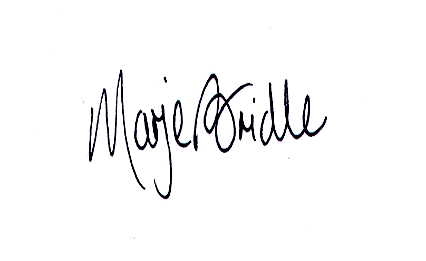 Marje Bridle